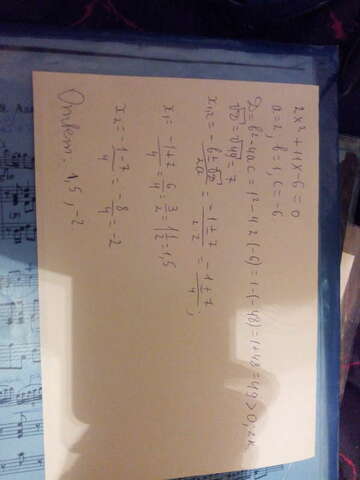 2x² + 1x - 6 = 0
a = 2, b = 1, c = -6
D = b² - 4ac = 1² - 4·2·(-6) = 1 - (-48) = 1 + 48 = 49 > 0, 2к.
√D = √49 = 7
x₁,₂ = (-b ± √D)/2a = (-1 ± 7)/(2·2) = (-1 ± 7)/4;
x₁ = (-1+7)/4 = 6/4 = 3/2 = 1 1/2 = 1,5
x₂ = (-1-7)/4 = -8/4 = -2
Ответ: 1,5, -2